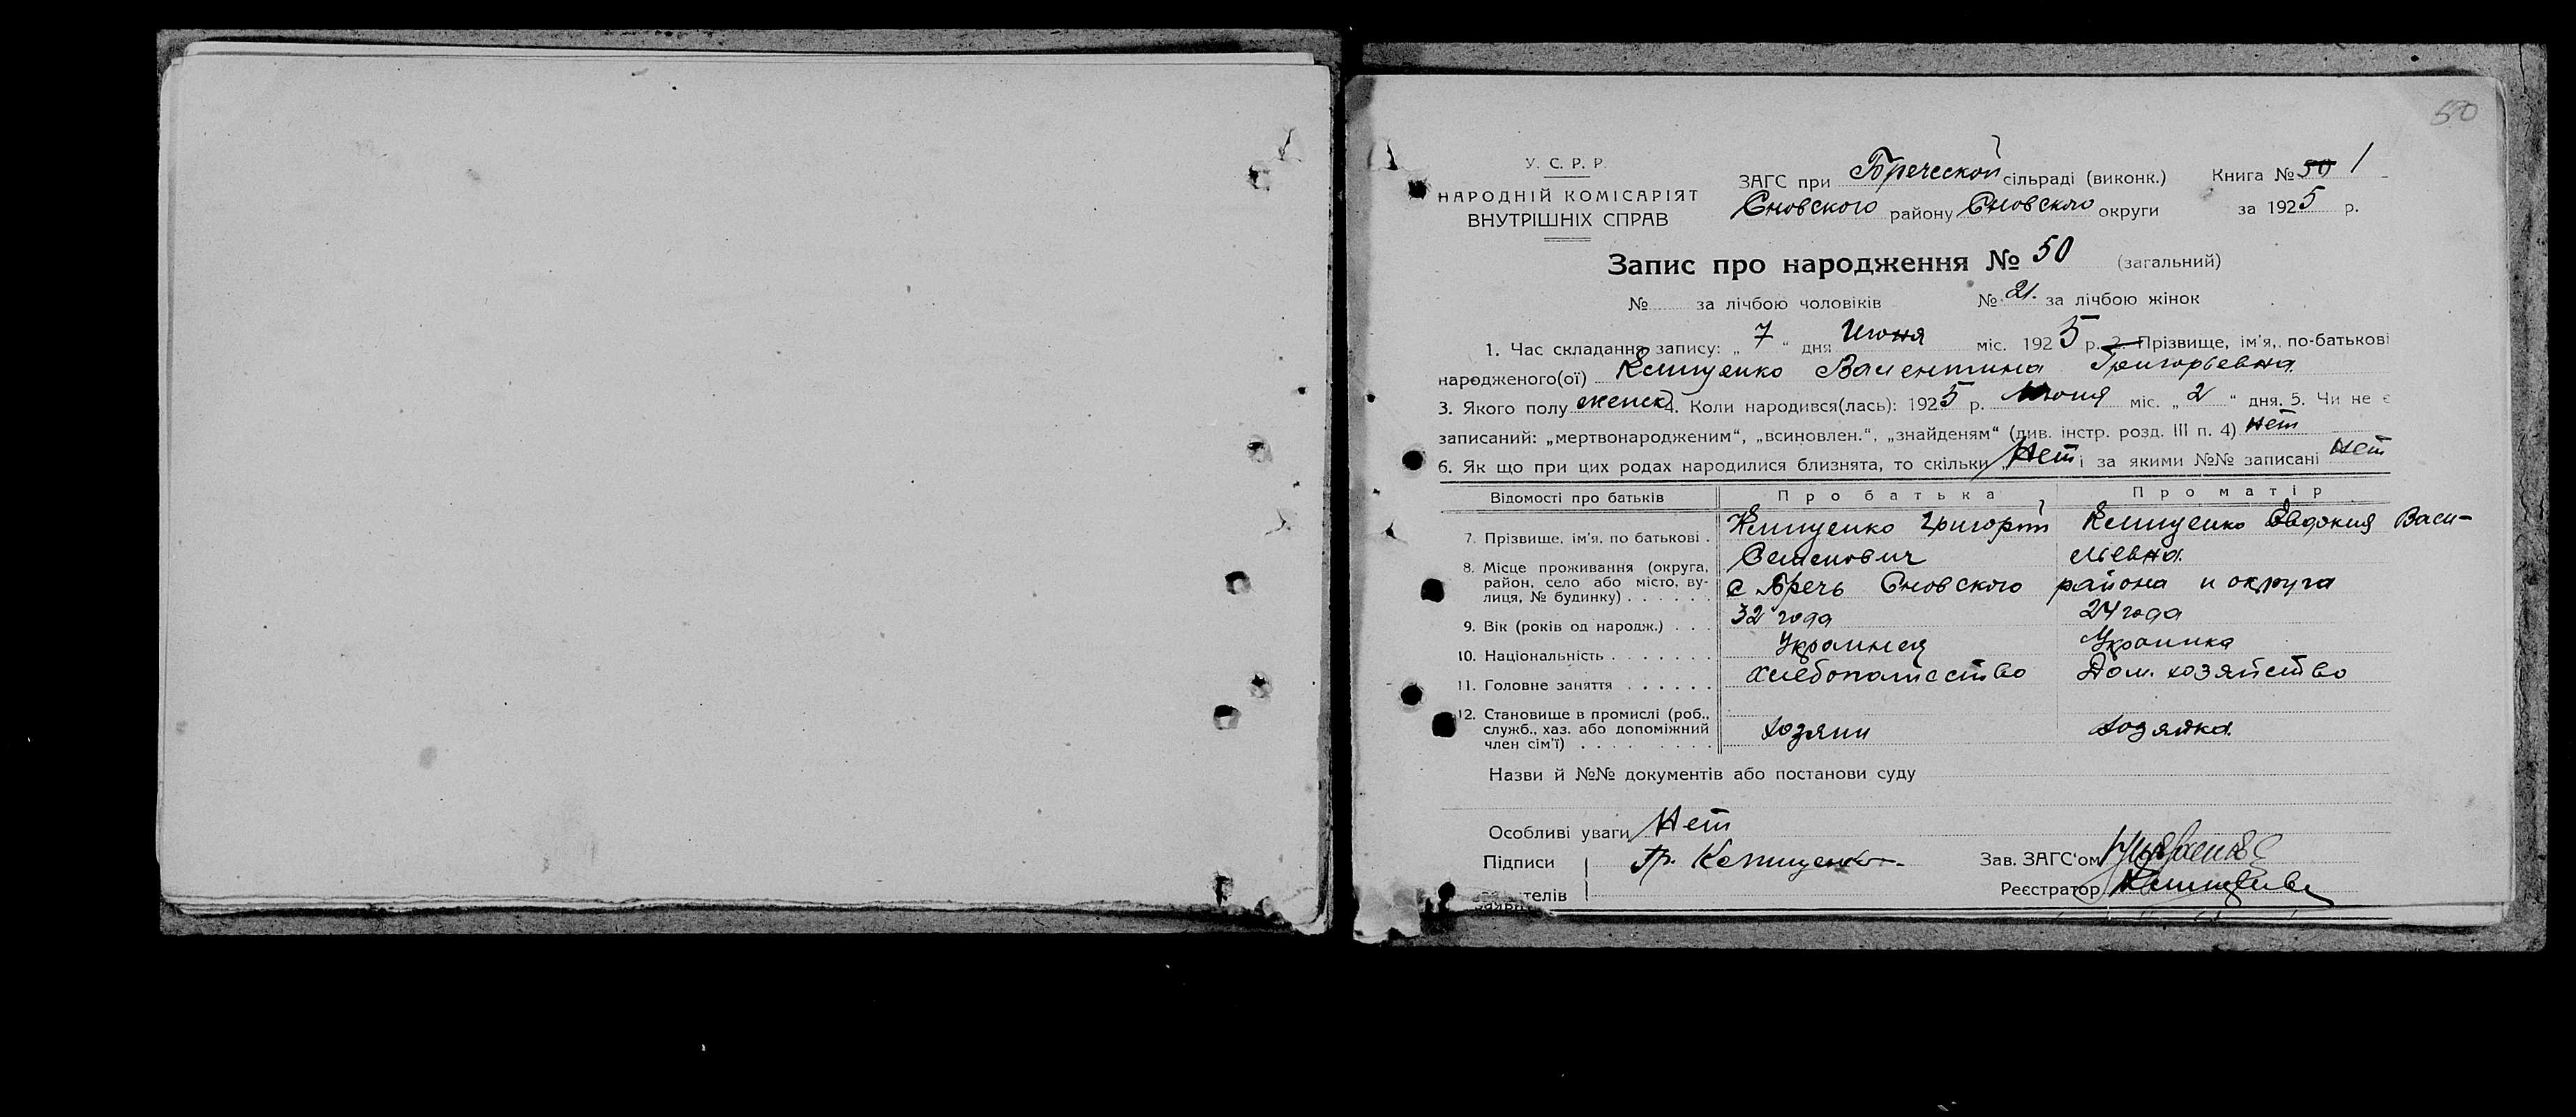 50
У. С. Р. Р.
НАРОДНІЙ КОМІСАРІЯТ
ВНУТРІШНІХ СПРАВ
ЗАГС при Бреческой сільраді (виконк.) Книга № 50 1
Сновского району Сновского округи за 1925 р.
Запис про народження № 50 (загальний)
№ за лічбою чоловіків № 21. за лічбою жінок
1. Час складання запису: „ 7 “ дня Июня міс. 1925 р. 2. Прізвище, ім'я, по-батькові
народженого(ої) Клищенко Валентина Григорьевна
3. Якого полу женск 4. Коли народився(лась): 1925 р. Июня міс. „ 2 “ дня. 5. Чи не є
записаний: „мертвонародженим“, „всиновлен.“, „знайденям“ (див. інстр. розд. III п. 4) Нет
6. Як що при цих родах народилися близнята, то скільки „ Нет і за якими №№ записані Нет
Відомості про батьків Про батька Про матір
7. Прізвище, ім'я, по батькові . Клищенко Григорий Клищенко Евдокия Васи-
Семенович льевна.
8. Місце проживання (округа,
район, село або місто, ву-
лиця, № будинку) . . . . . . с Бречь Сновского района и округа
9. Вік (років од народж.) . . . 32 года 24 года
10. Національність . . . . . . . Украинец Украинка
11. Головне заняття . . . . . . Хлебопашество Дом. хозяйство
12. Становище в промислі (роб.,
служб., хаз. або допоміжний
член сім'ї) . . . . . . . . хозяин хозяйка
Назви й №№ документів або постанови суду
Особливі уваги Нет
Підписи Гр. Клищенко Зав. ЗАГС'ом
телів Реєстратор